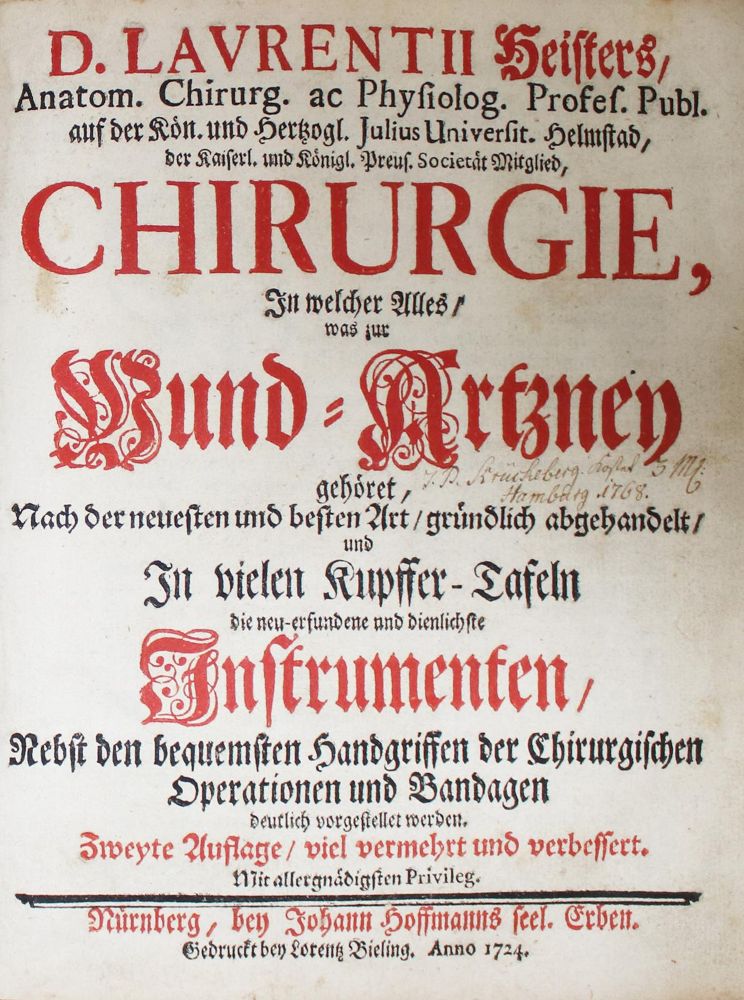 D. LAVRENTII Heisters/
Anatom. Chirurg. ac Physiolog. Profes. Publ.
auf der Kön. und Hertzogl. Julius Universit. Helmstad,
der Kaiserl. und Königl. Preus. Societät Mitglied,
CHIRURGIE,
In welcher Alles/
was zur
Wund-Artzney
gehöret,
J. D. Krücheberg. kostet 3 Mk:
Hamburg 1768.
Nach der neuesten und besten Art/ gründlich abgehandelt/
und
In vielen Kupffer-Tafeln
die neu-erfundene und dienlichste
Instrumenten/
Nebst den bequemsten Handgriffen der Chirurgischen
Operationen und Bandagen
deutlich vorgestellet werden.
Zweyte Auflage/ viel vermehrt und verbessert.
Mit allergnädigsten Privileg.
Nürnberg, bey Johann Hoffmanns seel. Erben.
Gedruckt bey Lorentz Bieling. Anno 1724.